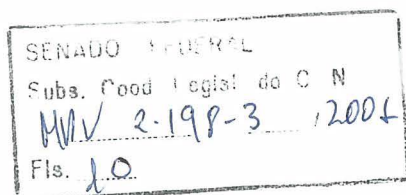 SENADO FEDERAL
Subs. Cood Legisl do C N
MPV 2.198-3 /2001
Fls. 10